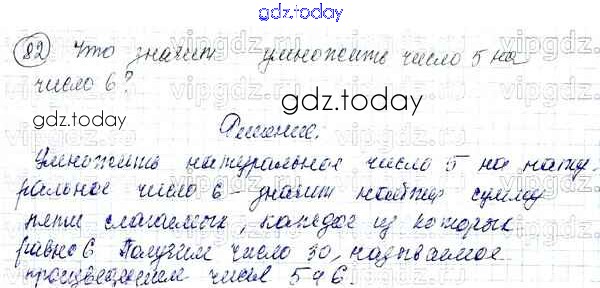 gdz.today
82 Что значит умножить число 5 на
число 6?
gdz.today
gdz.today
Решение.
Умножить натуральное число 5 на нату-
ральное число 6 - значит найти сумму
пяти слагаемых, каждое из которых
равно 6 Получим число 30, называемое
произведением чисел 5 и 6.